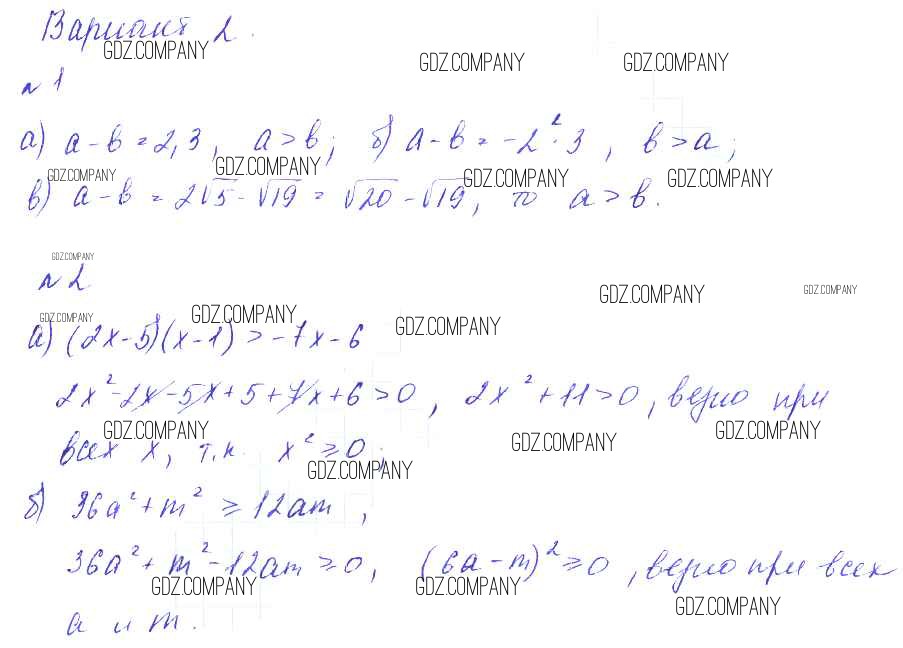 Вариант 2.
GDZ.COMPANY
GDZ.COMPANY GDZ.COMPANY
№ 1
а) a - b = 2,3, a > b; б) a - b = -2² · 3, b > a;
GDZ.COMPANY GDZ.COMPANY GDZ.COMPANY GDZ.COMPANY
в) a - b = 2√5 - √19 = √20 - √19, то a > b.
GDZ.COMPANY
№ 2
GDZ.COMPANY GDZ.COMPANY
GDZ.COMPANY GDZ.COMPANY GDZ.COMPANY
а) (2x - 5)(x - 1) > -7x - 6
2x² - 2x - 5x + 5 + 7x + 6 > 0, 2x² + 11 > 0, верно при
GDZ.COMPANY GDZ.COMPANY GDZ.COMPANY
всех x, т.к. x² ≥ 0;
GDZ.COMPANY
б) 36a² + m² ≥ 12am,
36a² + m² - 12am ≥ 0, (6a - m)² ≥ 0, верно при всех
GDZ.COMPANY GDZ.COMPANY
GDZ.COMPANY
a и m.